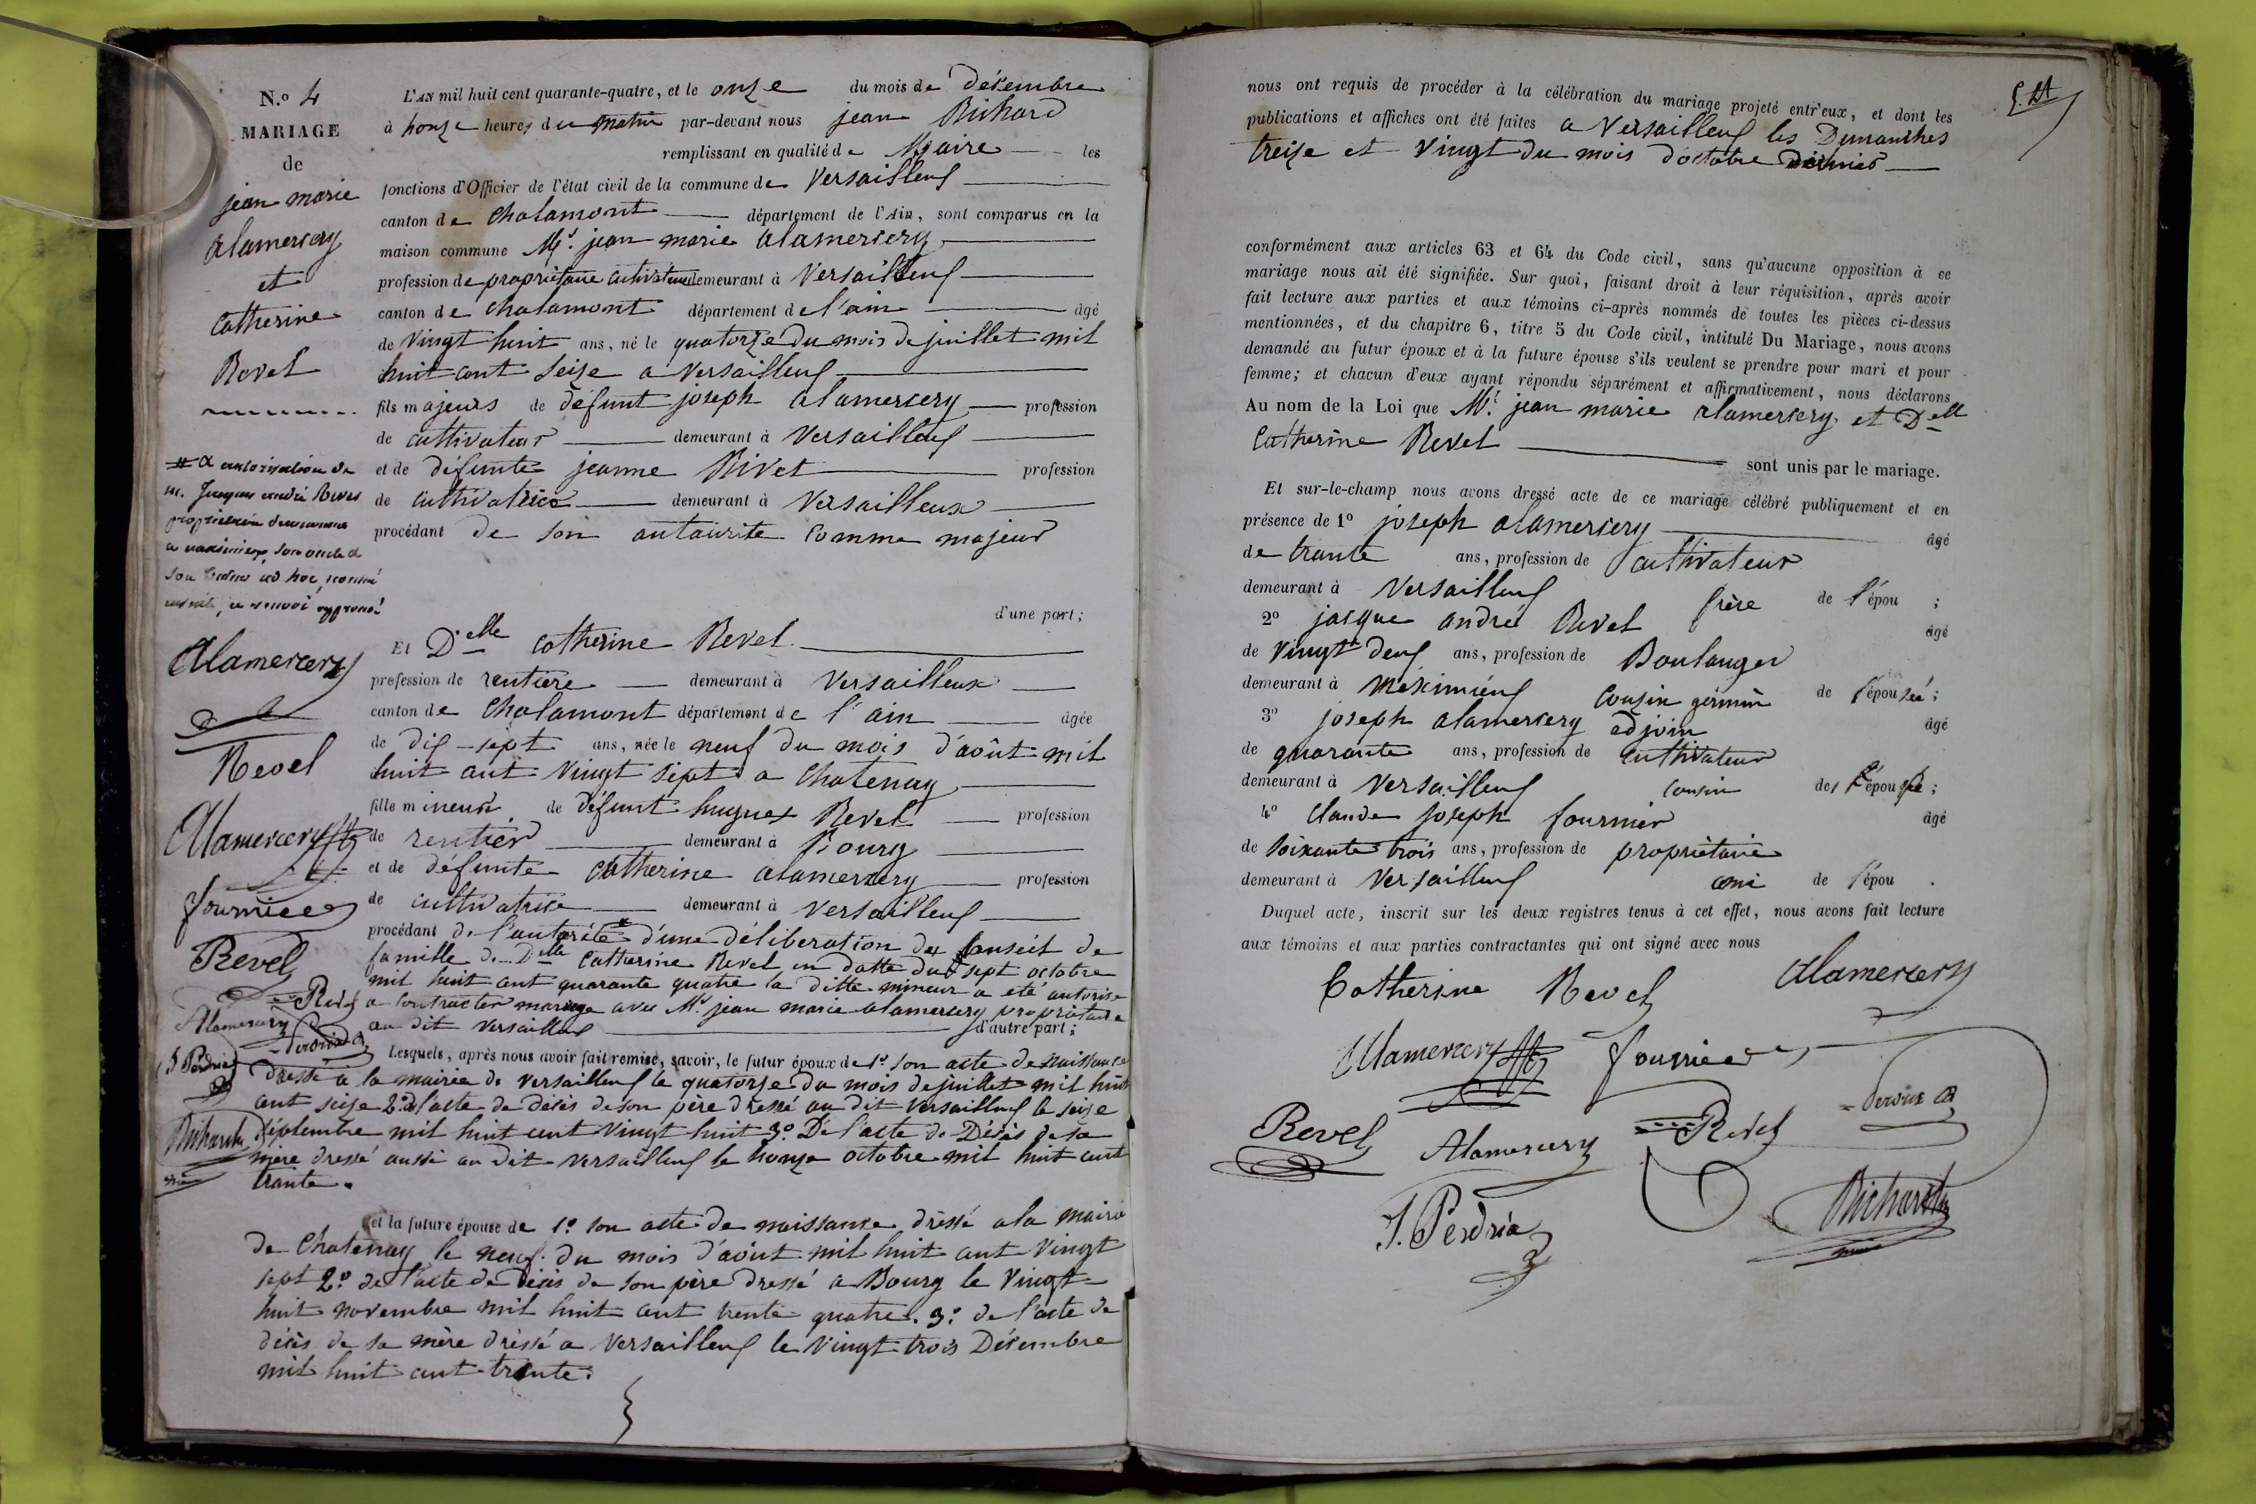 N.o 4
MARIAGE
de
jean marie
alamercery
et
Catherine
Revel
L'AN mil huit cent quarante-quatre, et le onze du mois de décembre
à honze heures du matin par-devant nous jean Richard
remplissant en qualité de Maire les
fonctions d'Officier de l'état civil de la commune de Versailleux
canton de Chalamont département de l'Ain, sont comparus en la
maison commune Mr. jean marie alamercery
profession de propriétaire cultivateur demeurant à Versailleux
canton de Chalamont département de l'ain âgé
de Vingt huit ans, né le quatorze du mois de juillet mil
huit cent seize a Versailleux
fils majeurs de défunt joseph alamercery profession
de cultivateur demeurant à Versailleux
et de défunte jeanne Rivet profession
de cultivatrice demeurant à Versailleux
procédant de son autaurité comme majeur
d'une part;
Et Delle Catherine Revel
profession de rentière demeurant à Versailleux
canton de Chalamont département de l'ain âgée
de dix-sept ans, née le neuf du mois d'août mil
huit cent vingt sept a Chatenay
fille mineure de défunt hugues Revel profession
de rentier demeurant à Bourg
et de défunte Catherine alamercery profession
de cultivatrice demeurant à Versailleux
procédant de l'autorité d'une déliberation du Conseil de
famille de Delle Catherine Revel en datte du sept octobre
mil huit cent quarante quatre la ditte mineur a eté autorise
a contracter mariage avec Mr jean marie alamercery propriétaire
au dit Versailleux d'autre part;
Lesquels, après nous avoir fait remise, savoir, le futur époux de 1o son acte de naissance
dressé à la mairie de Versailleux le quatorze du mois de juillet mil huit
cent seize 2o de l'acte de décès de son père dressé au dit Versailleux le seize
septembre mil huit cent Vingt huit 3o De l'acte de Décès de sa
mère dressé aussi au Dit Versailleux le honze octobre mil huit cent
trante.
et la future épouse de 1o son acte de naissance dréssé a la mairie
de Chatenay le neuf du mois d'août mil huit cent Vingt
sept 2o de l'acte de décès de son père dressé a Bourg le Vingt
huit novembre mil huit cent trente quatre. 3o de l'acte de
décès de sa mère dréssé a Versailleux le Vingt trois Décembre
mil huit cent trante.
# a autorisation de
m. Jacques andré Revel
propriétaire demeurant
a meximieux, son oncle &
son tuteur ad hoc, nommé
renvoi approuvé
Alamercery
Revel
Alamercery
fournier
Revel
Revel
Alamercery
J Perdrix
Richard
nous ont requis de procéder à la célébration du mariage projeté entr'eux, et dont les
publications et affiches ont été faites a Versailleux les Dimanches
treize et Vingt du mois d'octobre dernier
conformément aux articles 63 et 64 du Code civil, sans qu'aucune opposition à ce
mariage nous ait été signifiée. Sur quoi, faisant droit à leur réquisition, après avoir
fait lecture aux parties et aux témoins ci-après nommés de toutes les pièces ci-dessus
mentionnées, et du chapitre 6, titre 5 du Code civil, intitulé Du Mariage, nous avons
demandé au futur époux et à la future épouse s'ils veulent se prendre pour mari et pour
femme; et chacun d'eux ayant répondu séparément et affirmativement, nous déclarons
Au nom de la Loi que Mr. jean marie alamercery et Delle
Catherine Revel sont unis par le mariage.
Et sur-le-champ nous avons dressé acte de ce mariage célébré publiquement et en
présence de 1o joseph alamercery âgé
de trante ans, profession de cultivateur
demeurant à Versailleux frère de l'épou ;
2o jacque andré Revel âgé
de Vingt deux ans, profession de Boulanger
demeurant à Meximieux Cousin germin de l'épouseé;
3o joseph alamercery adjoin âgé
de quarante ans, profession de cultivateur
demeurant à Versailleux Cousin des l'épouse;
4o Claude joseph fournier âgé
de soixante trois ans, profession de propriétaire
demeurant à Versailleux ami de l'épou .
Duquel acte, inscrit sur les deux registres tenus à cet effet, nous avons fait lecture
aux témoins et aux parties contractantes qui ont signé avec nous
Catherine Revel Alamercery
Alamercery fournier
Revel Alamercery Revel
J. Perdrix Richard